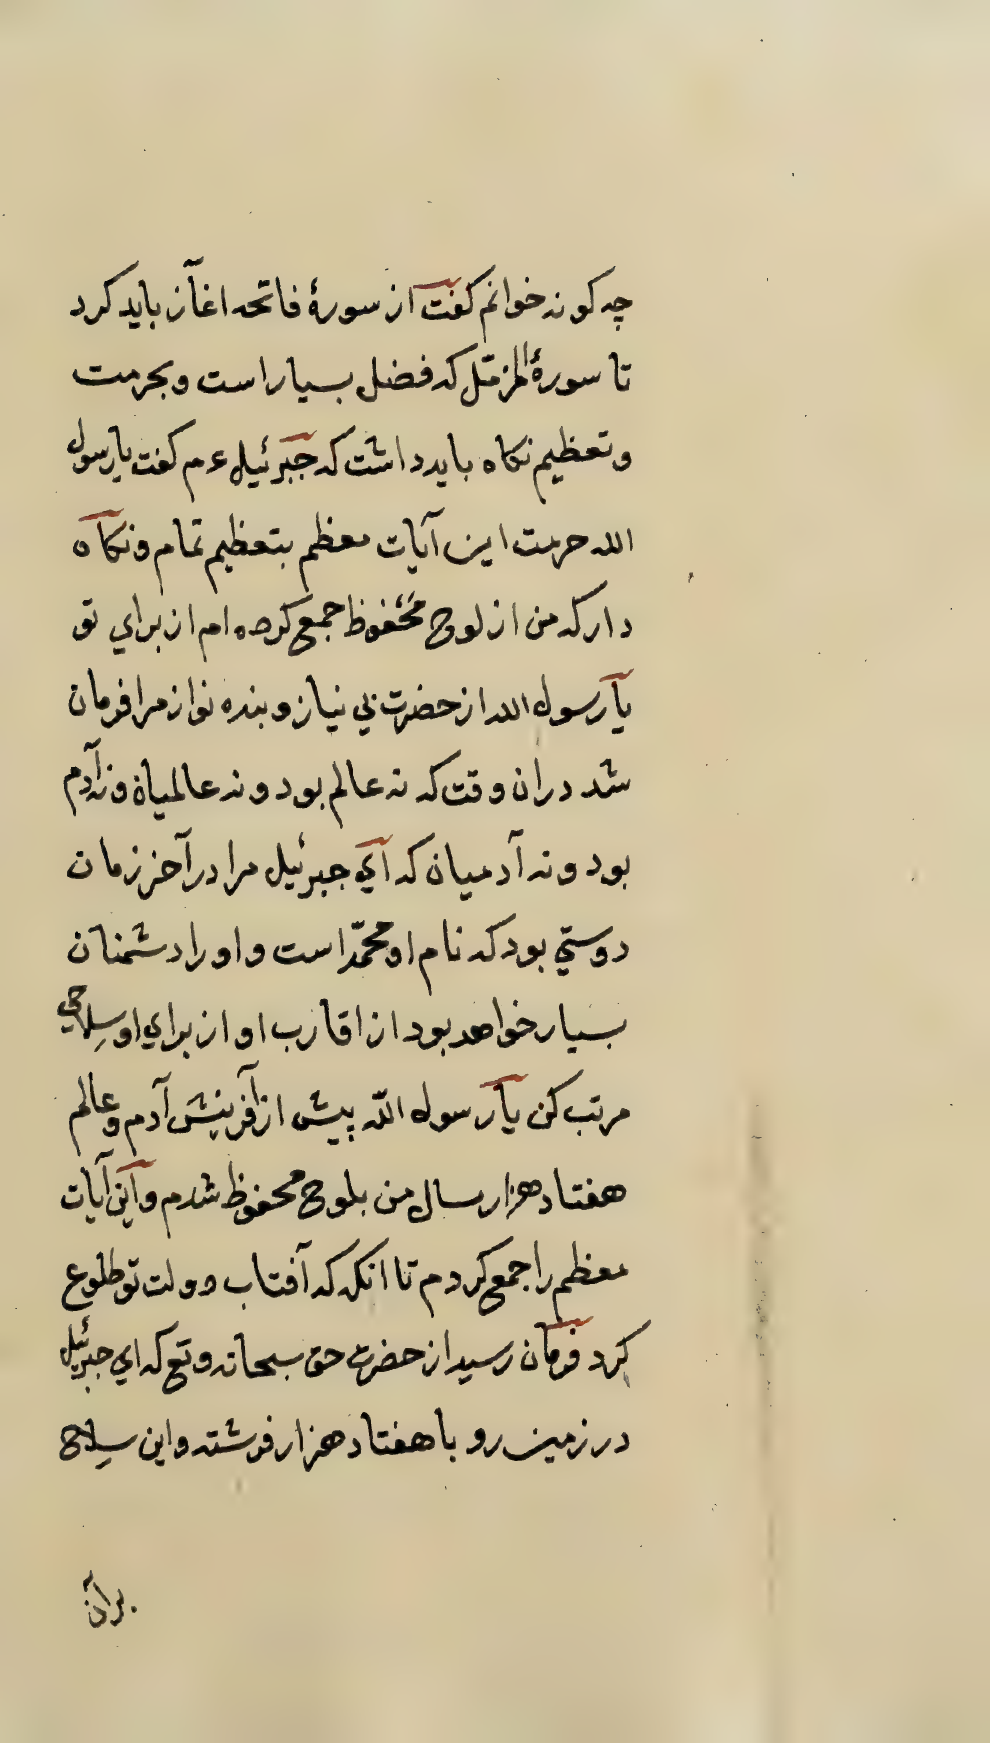 چه كونه خوانم كفت از سورهٔ فاتحه اغآز بايد كرد
تا سورهٔ المزمّل كه فضل بسيار است و بحرمت
و تعظيم نكاه بايد داشت كه جبرئيل عم كفت يا رسول
الله حرمت اين آيات معظم بتعظيم تمام و نكآه
دار كه من از لوح محفوظ جمع كرده ام از براي تو
يآ رسول الله از حضرت بي نياز و بنده نواز مرا فرمان
شد دران وقت كه نه عالم بود و نه عالميان و نه آدم
بود و نه آدميان كه آي جبرئيل مرا در آخر زمان
دوستي بود كه نام او محمّد است و او را دشمنان
بسيار خواهد بود از اقارب او از براي او سلاحي
مرتب كن يآ رسول اللّه پيش از آفرينش آدم و عالم
هفتاد هزار سال من بلوح محفوظ شدم و آين آيات
معظم را جمع كردم تا انكه كه آفتاب دولت تو طلوع
كرد فرمان رسيد از حضرت حق سبحانه و تع كه اي جبرئيل
در زمين رو با هفتاد هزار فرشته و اين سلاح
برآن